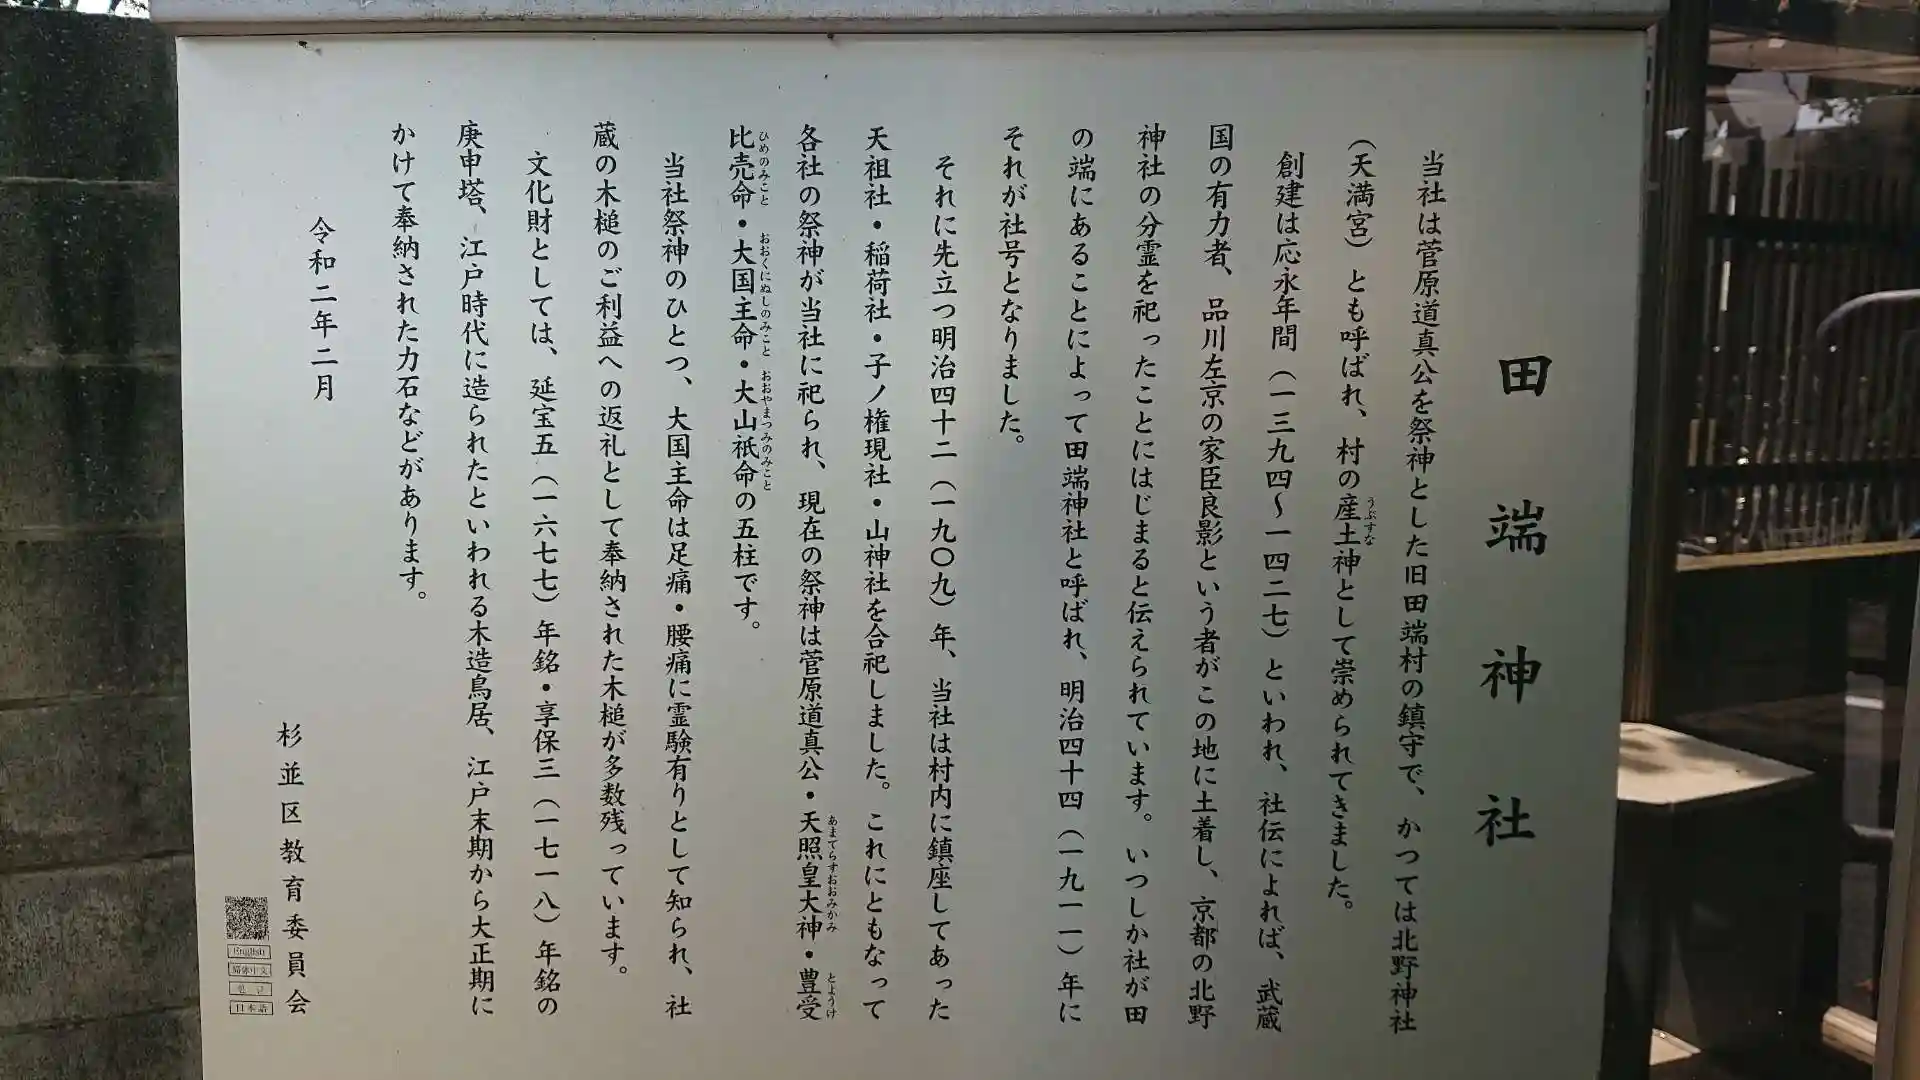 田端神社
当社は菅原道真公を祭神とした旧田端村の鎮守で、かつては北野神社
（天満宮）とも呼ばれ、村の産土神として崇められてきました。
うぶすな
創建は応永年間（一三九四〜一四二七）といわれ、社伝によれば、武蔵
国の有力者、品川左京の家臣良影という者がこの地に土着し、京都の北野
神社の分霊を祀ったことにはじまると伝えられています。いつしか社が田
の端にあることによって田端神社と呼ばれ、明治四十四（一九一一）年に
それが社号となりました。
それに先立つ明治四十二（一九〇九）年、当社は村内に鎮座してあった
天祖社・稲荷社・子ノ権現社・山神社を合祀しました。これにともなって
各社の祭神が当社に祀られ、現在の祭神は菅原道真公・天照皇大神・豊受
あまてらすおおみかみ とようけ
比売命・大国主命・大山祇命の五柱です。
ひめのみこと おおくにぬしのみこと おおやまつみのみこと
当社祭神のひとつ、大国主命は足痛・腰痛に霊験有りとして知られ、社
蔵の木槌のご利益への返礼として奉納された木槌が多数残っています。
文化財としては、延宝五（一六七七）年銘・享保三（一七一八）年銘の
庚申塔、江戸時代に造られたといわれる木造鳥居、江戸末期から大正期に
かけて奉納された力石などがあります。
令和二年二月
杉並区教育委員会
English
简体中文
한글
日本語